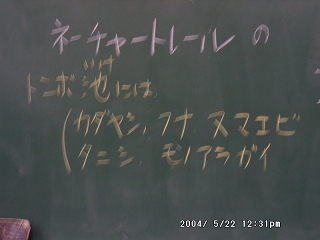 ネーチャートレールの
いけ
トンボ池には、
(カダヤシ、フナ、ヌマエビ
タニシ、モノアラガイ
2004/ 5/22 12:31pm